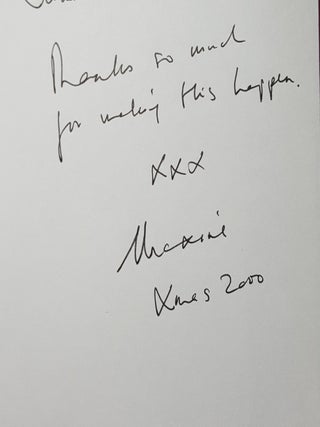 Thanks so much
for making this happen.
xxx
Maxine
Xmas 2000